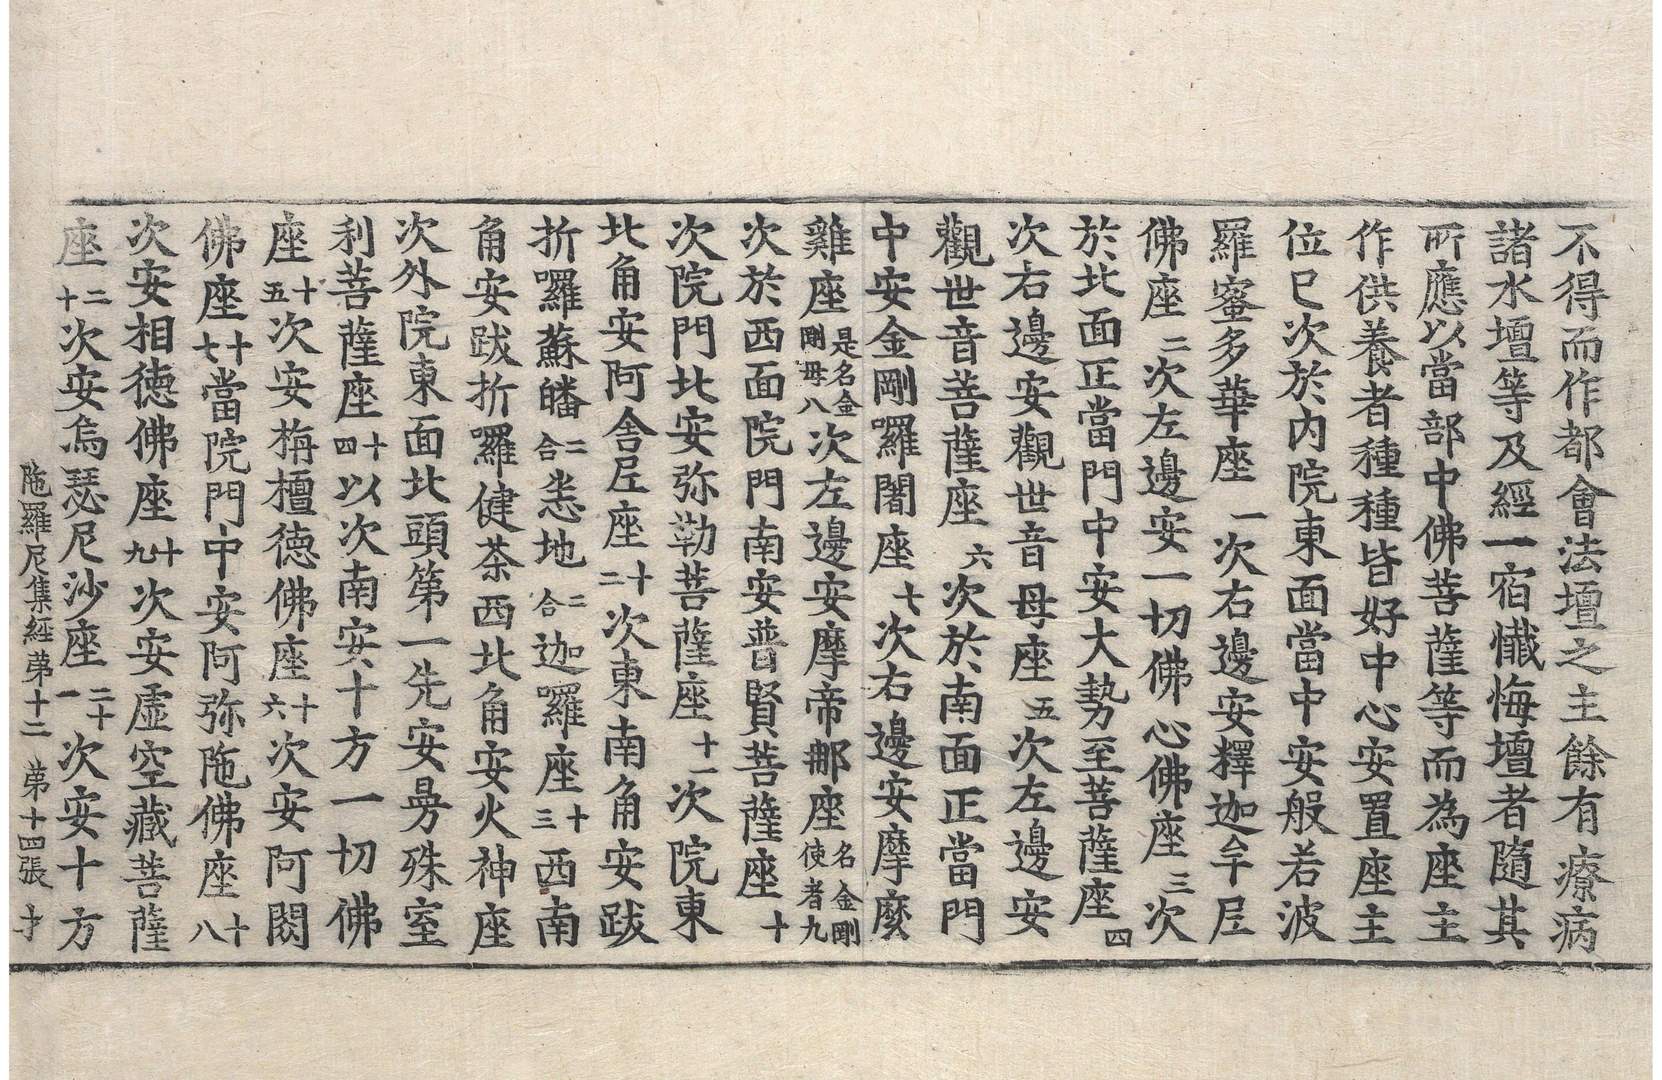 不得而作都會法壇之主餘有療病
諸水壇等及經一宿懺悔壇者隨其
所應以當部中佛菩薩等而為座主
作供養者種種皆好中心安置座主
位已次於內院東面當中安般若波
羅蜜多華座一次右邊安釋迦牟尼
佛座二次左邊安一切佛心佛座三次
於北面正當門中安大勢至菩薩座四
次右邊安觀世音母座五次左邊安
觀世音菩薩座六次於南面正當門
中安金剛囉闍座七次右邊安摩麼
雞座是名金剛母八次左邊安摩帝那座名金剛使者九
次於西面院門南安普賢菩薩座十
次院門北安弥勒菩薩座十一次院東
北角安阿舍尼座十二次東南角安跋
折囉蘇皤二合悉地二合迦囉座十三西南
角安跋折囉健荼西北角安火神座
次外院東面北頭第一先安曼殊室
利菩薩座十四以次南安十方一切佛
座十五次安栴檀德佛座十六次安阿閦
佛座十七當院門中安阿弥陁佛座十八
次安相德佛座十九次安虛空藏菩薩
座二十次安烏瑟尼沙座二十一次安十方
陁羅尼集經第十二 第十四張 才